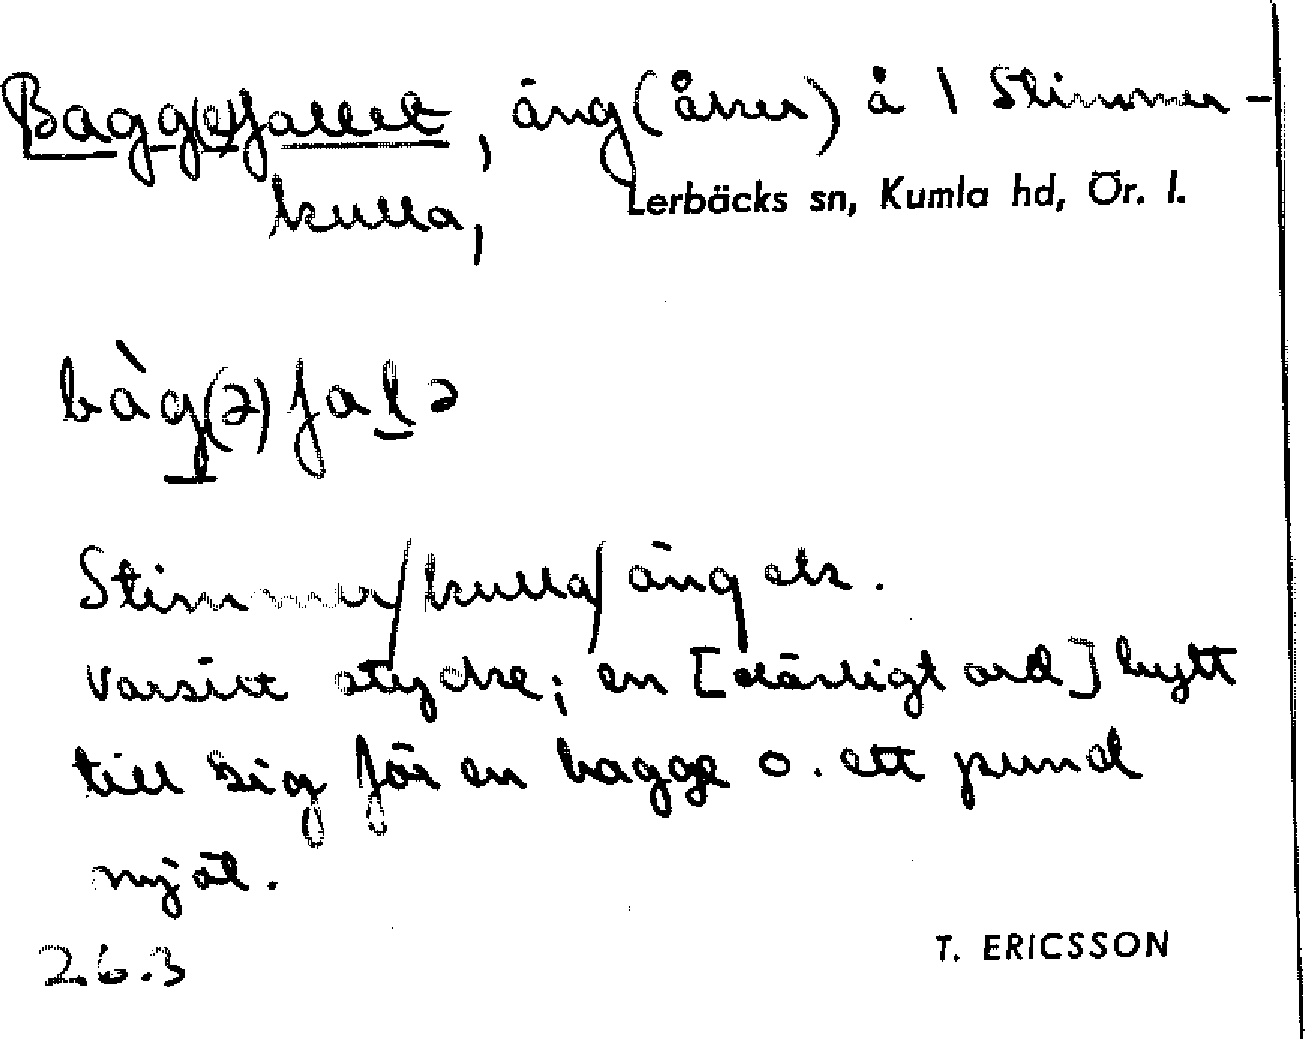 Bagg(e)fallet, äng(åker) å 1 Stimmer-
kulla, Lerbäcks sn, Kumla hd, Ör. l.
bàg(ə)falə
Stimmer/kulla/äng etc.
Varsitt stycke; en [dåligt ord] bytt
till sig för en bagge o. ett pund
mjöl.
26.3 T. ERICSSON